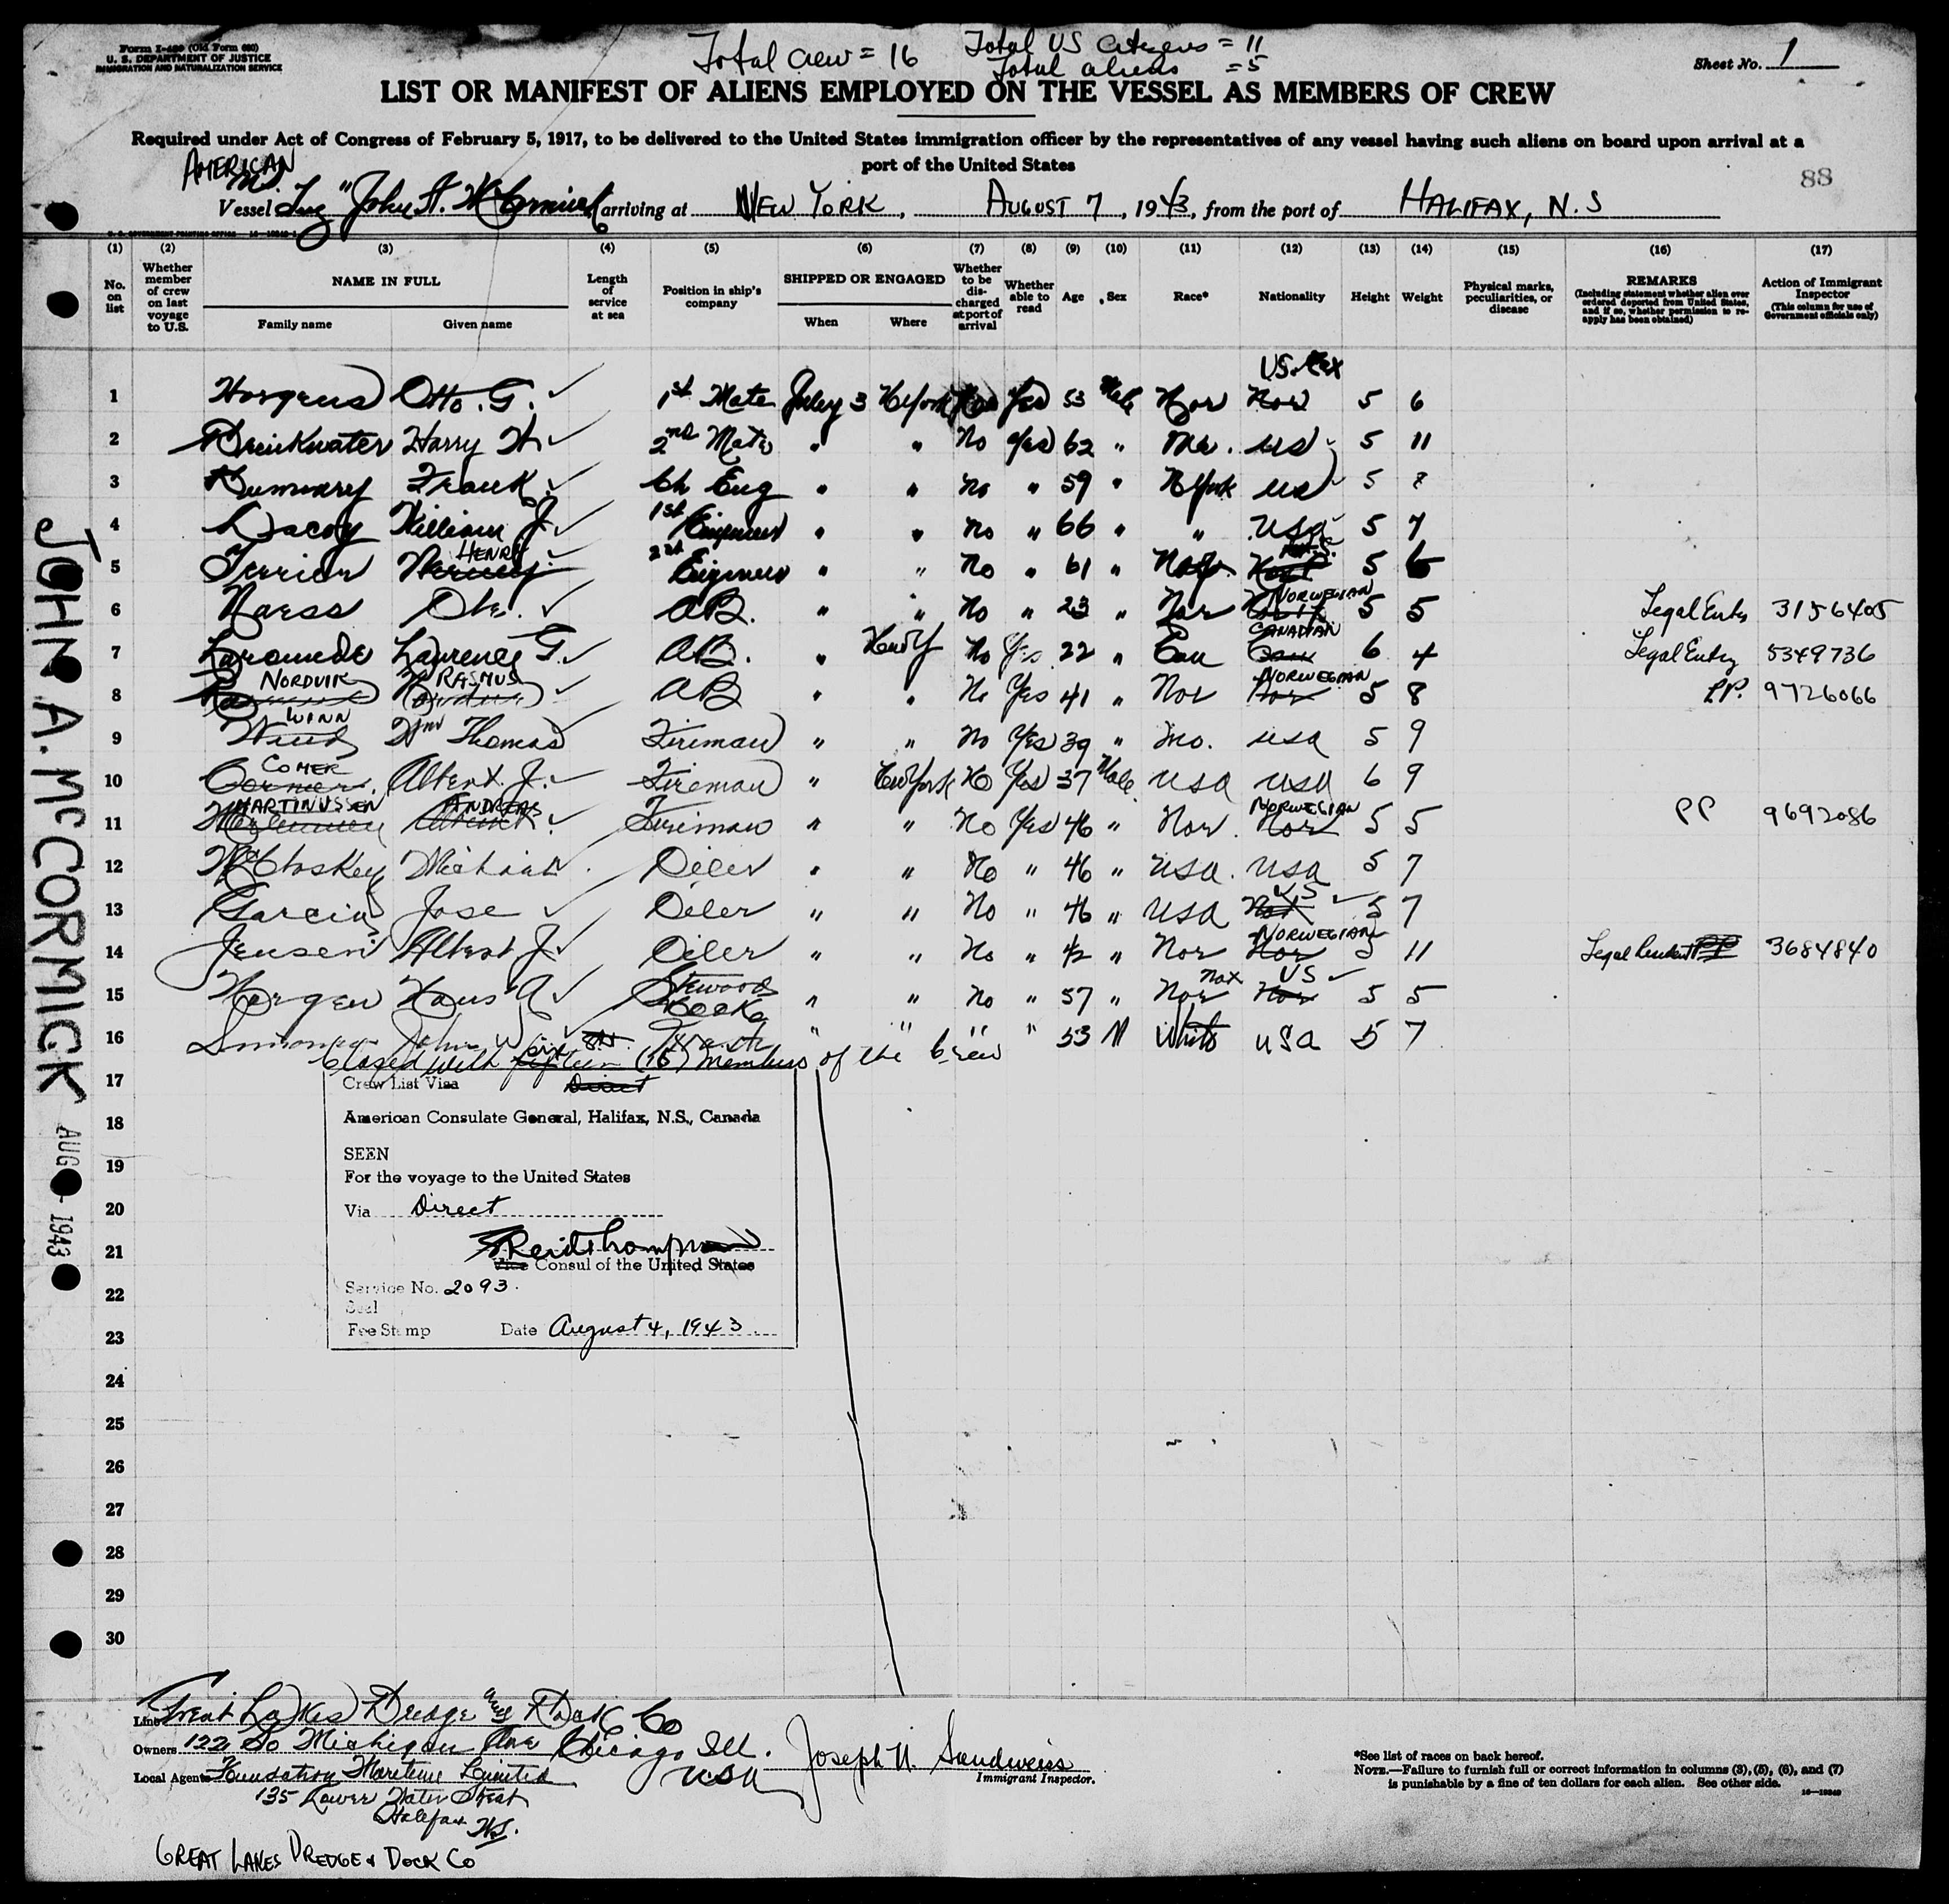 Form I-480 (Old Form 680)
U. S. DEPARTMENT OF JUSTICE
IMMIGRATION AND NATURALIZATION SERVICE
Total crew = 16 Total US citizens = 11
Total aliens = 5
Sheet No. 1
LIST OR MANIFEST OF ALIENS EMPLOYED ON THE VESSEL AS MEMBERS OF CREW
Required under Act of Congress of February 5, 1917, to be delivered to the United States immigration officer by the representatives of any vessel having such aliens on board upon arrival at a
port of the United States
88
AMERICAN
Vessel Tug "John A. McCormick arriving at NEW YORK, AUGUST 7, 1943, from the port of HALIFAX, N.S
(1) (2) (3) (4) (5) (6) (7) (8) (9) (10) (11) (12) (13) (14) (15) (16) (17)
No. on list
Whether member of crew on last voyage to U.S.
NAME IN FULL
Family name Given name
Length of service at sea
Position in ship's company
SHIPPED OR ENGAGED
When Where
Whether to be discharged at port of arrival
Whether able to read
Age Sex Race* Nationality Height Weight
Physical marks, peculiarities, or disease
REMARKS
(Including statement whether alien ever ordered deported from United States, and if so, whether permission to reapply has been obtained)
Action of Immigrant Inspector
(This column for use of Government officials only)
1 Otto. G. 1st Mate July 3 Yes 53 Male Nor Nor US 5 6
2 Drinkwater Harry H 2nd Mate " " No Yes 62 " US 5 11
3 Frank Ch Eng " " No " 59 " N York US 5
4 Lacey William J. 1st Engineer " " No " 66 " " USA 5 7
5 HENRY 2nd Engineer " " No " 61 " 5 6
6 Naess Ole. AB. " " No " 23 " Nor NORWEGIAN 5 5 Legal Entry 3156405
7 Laromede Lawrence G. AB. " No Yes 22 " Can CANADIAN 6 4 Legal Entry 5349736
8 NORDVIK RASMUS AB " " No Yes 41 " Nor NORWEGIAN 5 8 P.P. 9726066
9 WINN Wm Thomas Fireman " " No Yes 39 " Mo. USA 5 9
10 COMER Albert. J. Fireman " New York No Yes 37 Male USA USA 6 9
11 MARTINUSSEN ANDREAS Fireman " " No Yes 46 " Nor. NORWEGIAN 5 5 PP 9692086
12 McCloskey Michael Oiler " " No " 46 " USA. USA 5 7
13 Garcia Jose Oiler " " No " 46 " USA US 5 7
14 Jensen Albert J. Oiler " " No " 42 " Nor NORWEGIAN 5 11 Legal Resident 3684840
15 Hans A Steward Cook " " No " 57 " Nor US 5 5
16 John W " " " " 53 M White USA 5 7
Closed with six teen (16) members of the Crew
17
Crew List Visa Direct
18
American Consulate General, Halifax, N.S., Canada
SEEN
19
For the voyage to the United States
20
Via Direct
21
Vice Consul of the United States
22
Service No. 2093.
Seal
23
Fee Stamp Date August 4, 1943
24
25
26
27
28
29
30
JOHN A. MCCORMICK AUG 1943
Line Great Lakes Dredge and Dock Co
Owners 122 So Michigan Ave Chicago Ill. USA
Joseph N. Sandweiss
Immigrant Inspector.
Local Agents Foundation Maritime Limited
135 Lower Water Street
Halifax N.S.
GREAT LAKES DREDGE & DOCK CO
*See list of races on back hereof.
NOTE.—Failure to furnish full or correct information in columns (3), (5), (6), and (7)
is punishable by a fine of ten dollars for each alien. See other side.